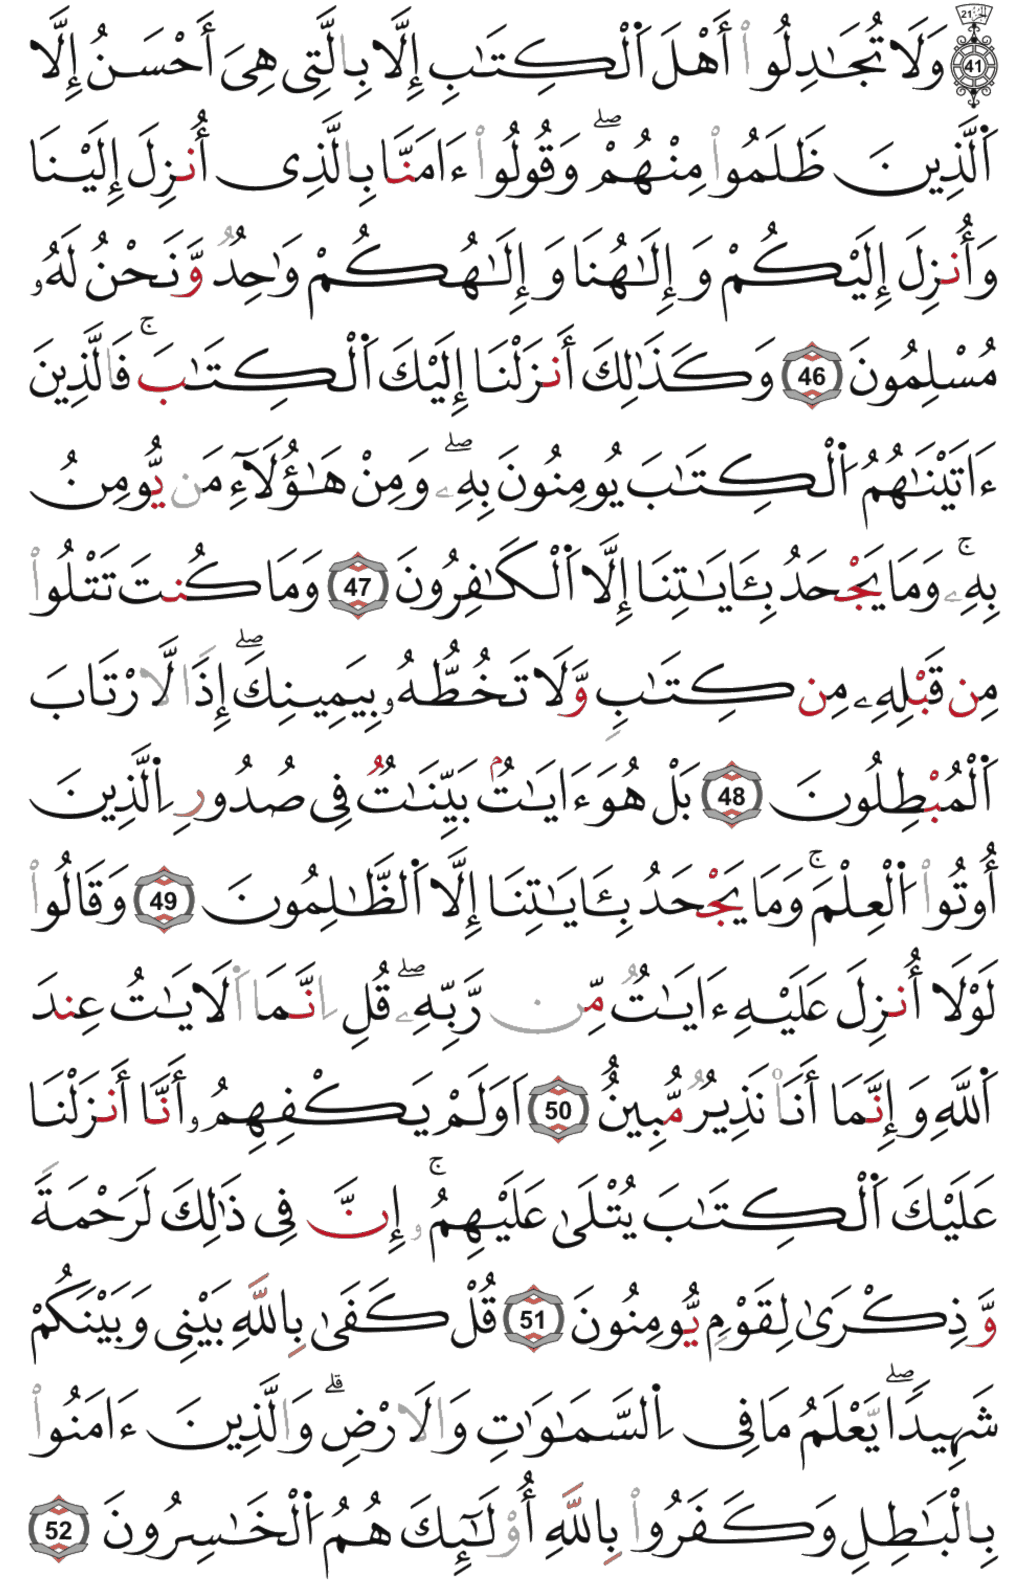 21 41 وَلَا تُجَٰدِلُوٓاْ أَهْلَ اَ۬لْكِتَٰبِ إِلَّا بِالَّتِي هِيَ أَحْسَنُ إِلَّا
اَ۬لَّذِينَ ظَلَمُواْ مِنْهُمْۖ وَقُولُوٓاْ ءَامَنَّا بِالَّذِےٓ أُنزِلَ إِلَيْنَا
وَأُنزِلَ إِلَيْكُمْ وَإِلَٰهُنَا وَإِلَٰهُكُمْ وَٰحِدٞ وَّنَحْنُ لَهُۥ
مُسْلِمُونَ 46 وَكَذَٰلِكَ أَنزَلْنَا إِلَيْكَ اَ۬لْكِتَٰبَۚ فَالَّذِينَ
ءَاتَيْنَٰهُمُ اُ۬لْكِتَٰبَ يُومِنُونَ بِهِۦۖ وَمِنْ هَٰؤُلَآءِ مَن يُّومِنُ
بِهِۦۚ وَمَا يَجْحَدُ بِـَٔايَٰتِنَا إِلَّا اَ۬لْكَٰفِرُونَ 47 وَمَا كُنتَ تَتْلُواْ
مِن قَبْلِهِۦ مِن كِتَٰبٖ وَّلَا تَخُطُّهُۥ بِيَمِينِكَۖ إِذاٗ لَّارْتَابَ
اَ۬لْمُبْطِلُونَ 48 بَلْ هُوَ ءَايَٰتُۢ بَيِّنَٰتٞ فِي صُدُورِ اِ۬لَّذِينَ
أُوتُواْ اُ۬لْعِلْمَۚ وَمَا يَجْحَدُ بِـَٔايَٰتِنَا إِلَّا اَ۬لظَّٰلِمُونَ 49 وَقَالُواْ
لَوْلَا أُنزِلَ عَلَيْهِ ءَايَٰتٞ مِّن رَّبِّهِۦۖ قُلِ اِنَّمَا اَ۬لَايَٰتُ عِندَ
اَ۬للَّهِ وَإِنَّمَا أَنَا۠ نَذِيرٞ مُّبِينٌ 50 اَوَلَمْ يَكْفِهِمُۥ أَنَّا أَنزَلْنَا
عَلَيْكَ اَ۬لْكِتَٰبَ يُتْلَىٰ عَلَيْهِمُۥۚ إِنَّ فِي ذَٰلِكَ لَرَحْمَةٗ
وَّذِكْرَىٰ لِقَوْمٖ يُّومِنُونَ 51 قُلْ كَفَىٰ بِاللَّهِ بَيْنِي وَبَيْنَكُمْ
شَهِيداٗۖ يَّعْلَمُ مَا فِي اِ۬لسَّمَٰوَٰتِ وَالَارْضِۗ وَالَّذِينَ ءَامَنُواْ
بِالْبَٰطِلِ وَكَفَرُواْ بِاللَّهِ أُوْلَٰٓئِكَ هُمُ اُ۬لْخَٰسِرُونَ 52